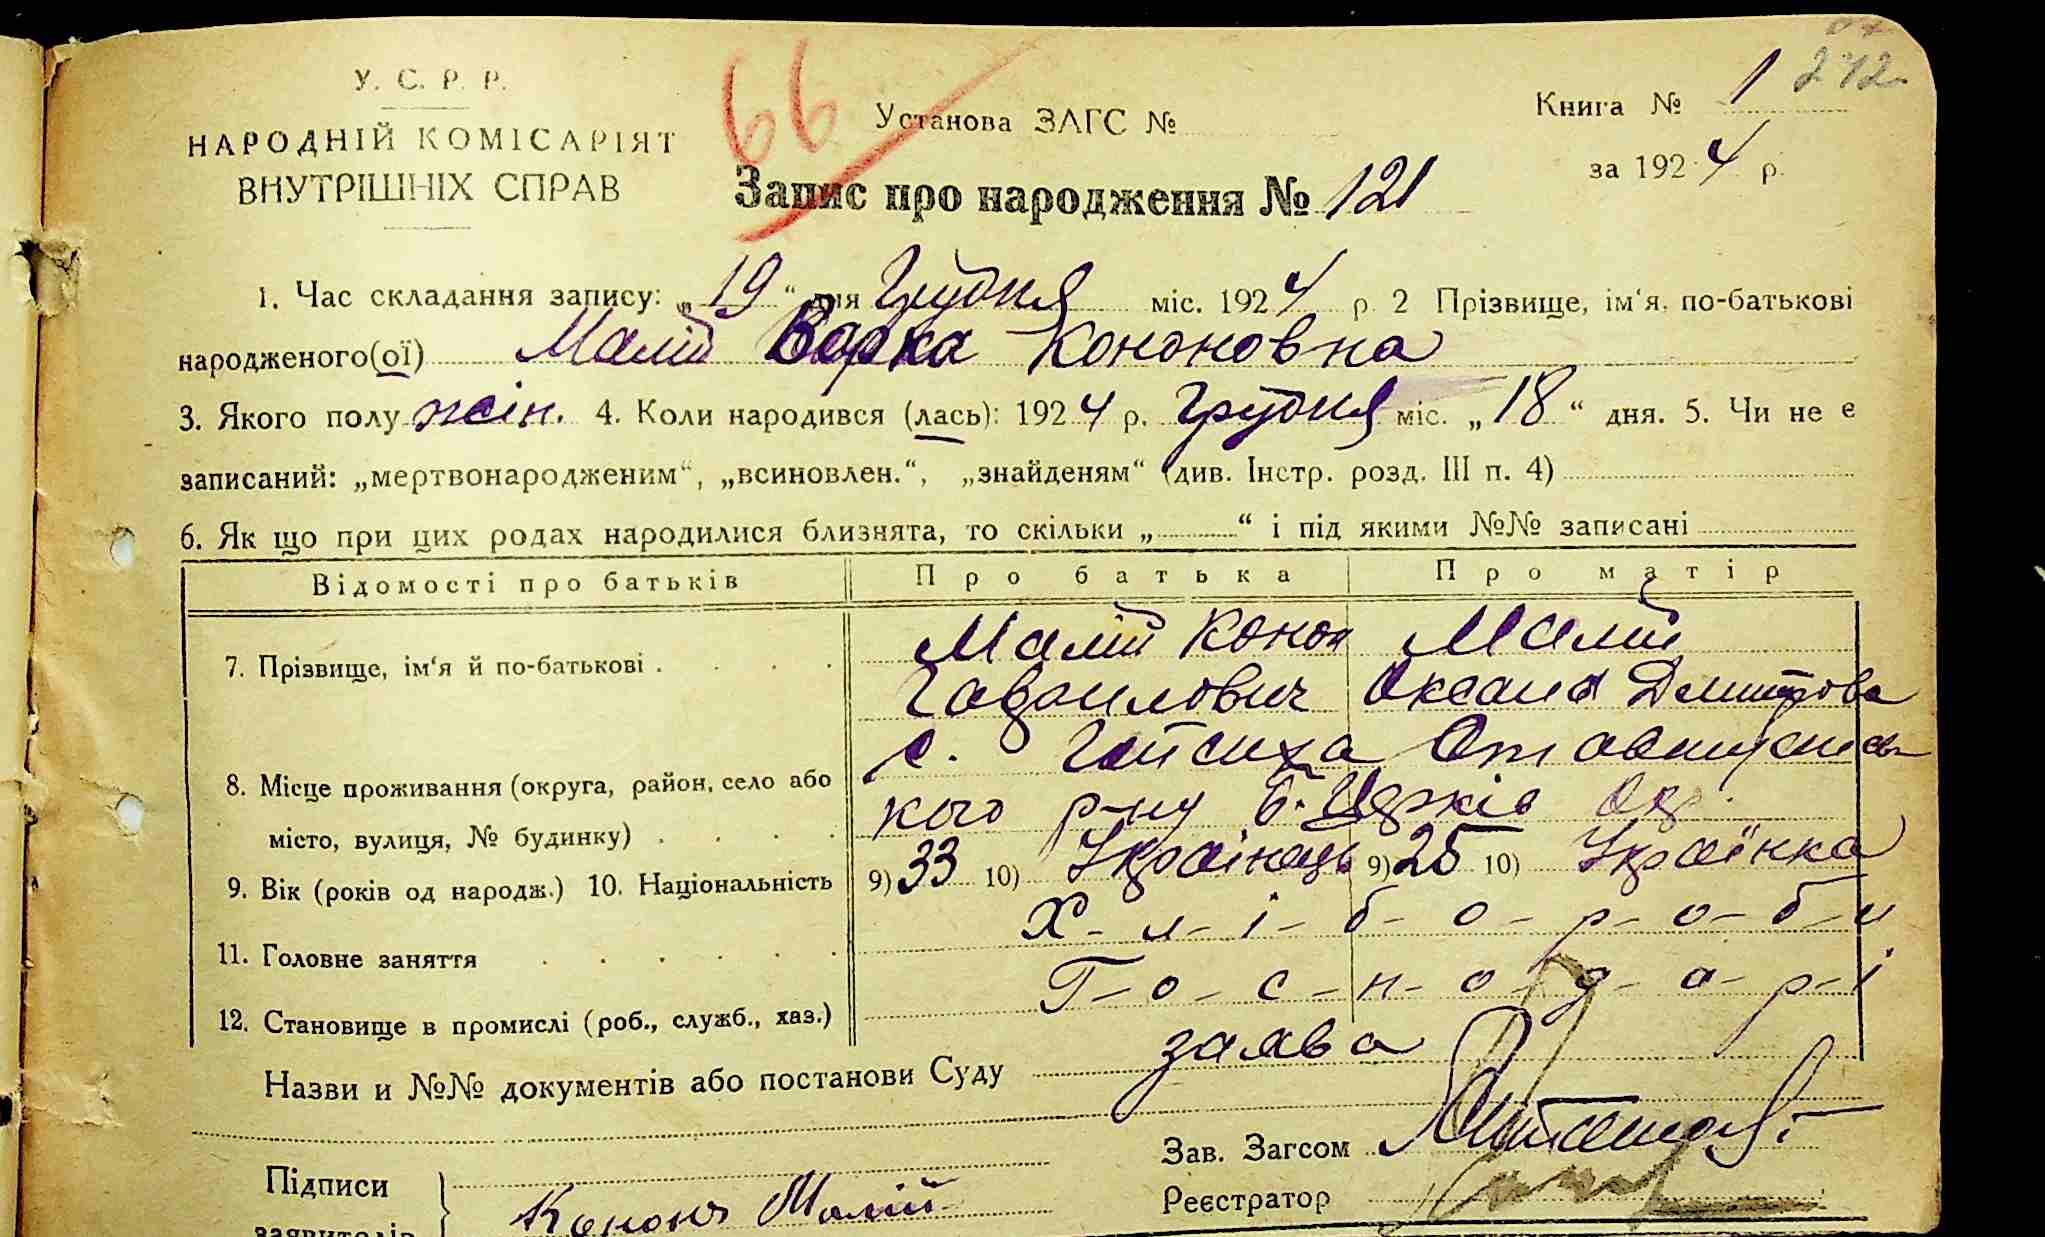 242
У. С. Р. Р.
НАРОДНІЙ КОМІСАРІЯТ
ВНУТРІШНІХ СПРАВ
66
Установа ЗАГС №
Книга № 1
за 1924 р.
Запис про народження № 121
1. Час складання запису: „19“ дня Грудня міс. 1924 р 2 Прізвище, ім‘я, по-батькові
народженого(ої) Малій Варка Кононовна
3. Якого полу жін. 4. Коли народився (лась): 1924 р. Грудня міс. „18“ дня. 5. Чи не є
записаний: „мертвонародженим“, „всиновлен.“, „знайденям“ (див. Інстр. розд. III п. 4)
6. Як що при цих родах народилися близнята, то скільки „ “ і під якими №№ записані
Відомості про батьків Про батька Про матір
7. Прізвище, ім‘я й по-батькові . . . . Малій Конон Малій
Гаврилович Оксана Дмитрова
с. Гайсиха
8. Місце проживання (округа, район, село або
місто, вулиця, № будинку) . . . . кого р-ну Б. Церків Окр.
9. Вік (років од народж.) 10. Національність 9) 33 10) Українець 9) 25 10) Українка
11. Головне заняття . . . . . . Х-л-і-б-о-р-о-б-и
12. Становище в промислі (роб., служб., хаз.) Г-о-с-п-о-д-а-р-і
Назви и №№ документів або постанови Суду заява
Зав. Загсом
Реєстратор
Підписи
заявителів
Кононъ Малій